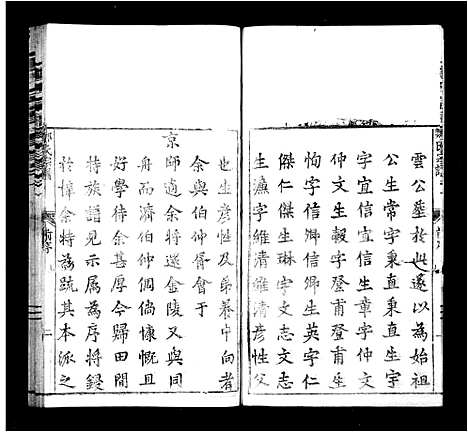 雲公墓於此遂以為始祖
公生常字秉直秉直生
字宜信宜信生章字
仲文生毅字登甫登甫生
恂字信卿信卿生英字仁
傑仁傑生琳字文志文志
生濂字維清維清生彦性父
也生彦性及弟
余與伯仲胥會于
京師適余將還金陵又與同
舟而濟伯仲倜倘慷慨且
好學待余甚厚今歸田間
特族譜見示属為序將鋟
於梓余特為䟽其本派之